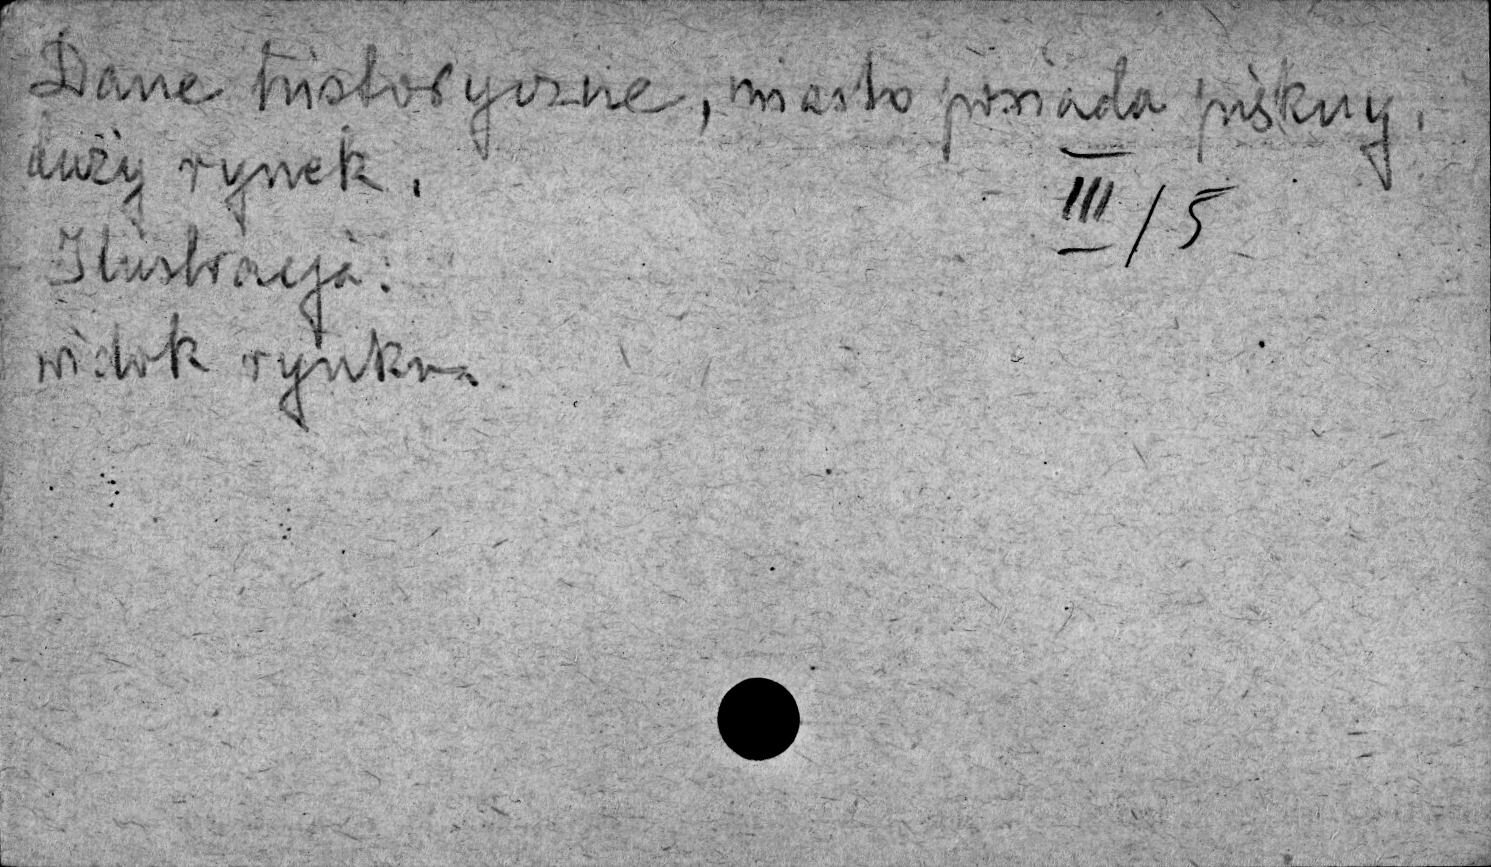 Dane historyczne, miasto posiada piękny,
duży rynek.
III/5
Ilustracja:
widok rynku.